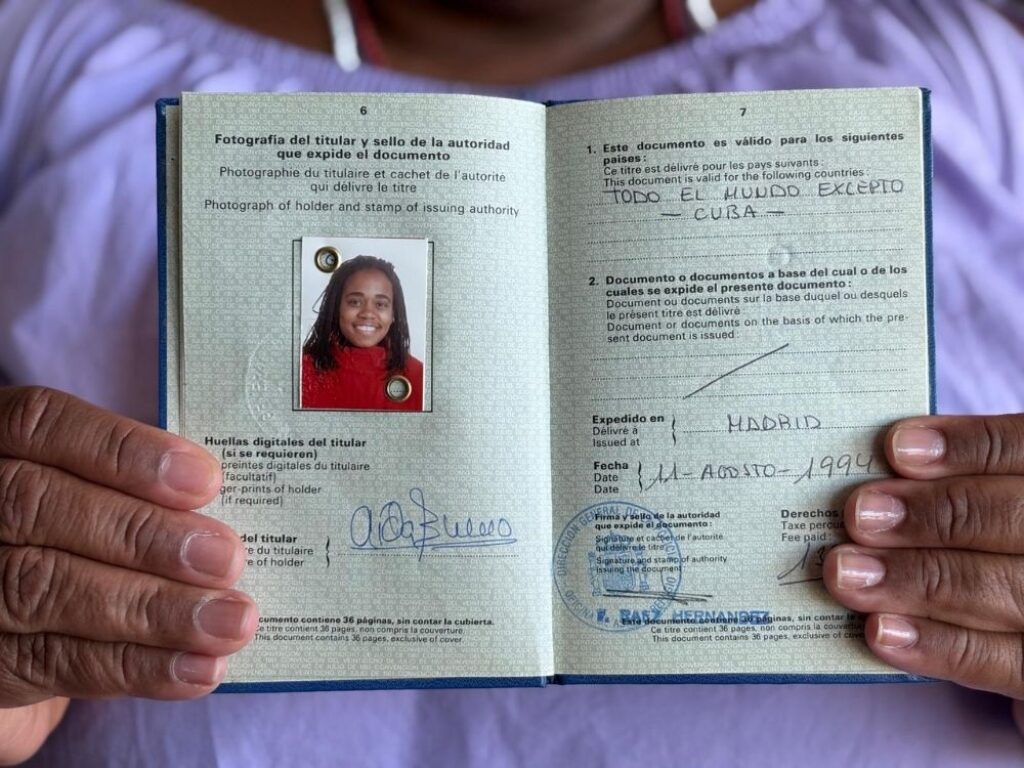 6
Fotografía del titular y sello de la autoridad
que expide el documento
Photographie du titulaire et cachet de l'autorité
qui délivre le titre
Photograph of holder and stamp of issuing authority
Huellas digitales del titular
(si se requieren)
preintes digitales du titulaire
(facultatif)
ger-prints of holder
(if required)
del titular
re du titulaire
re of holder
cumento contiene 36 páginas, sin contar la cubierta.
Ce titre contient 36 pages, non compris la couverture.
This document contains 36 pages, exclusive of cover
7
1. Este documento es válido para los siguientes
países:
Ce titre est délivré pour les pays suivants:
This document is valid for the following countries:
TODO EL MUNDO EXCEPTO
— CUBA —
2. Documento o documentos a base del cual o de los
cuales se expide el presente documento:
Document ou documents sur la base duquel ou desquels
le présent titre est délivré
Document or documents on the basis of which the pre-
sent document is issued:
Expedido en
Délivré à
Issued at
MADRID
Fecha
Date
Date
11-AGOSTO-1994
Firma y sello de la autoridad
que expide el documento:
Signature et cachet de l'autorité
qui délivre le titre
Signature and stamp of authority
issuing the document
Derechos
Taxe perçue
Fee paid:
DIRECCION GENERAL DE
HERNANDEZ
Este documento contiene 36 páginas, sin contar la
Ce titre contient 36 pages, non compris la couverture
This document contains 36 pages, exclusive of cove